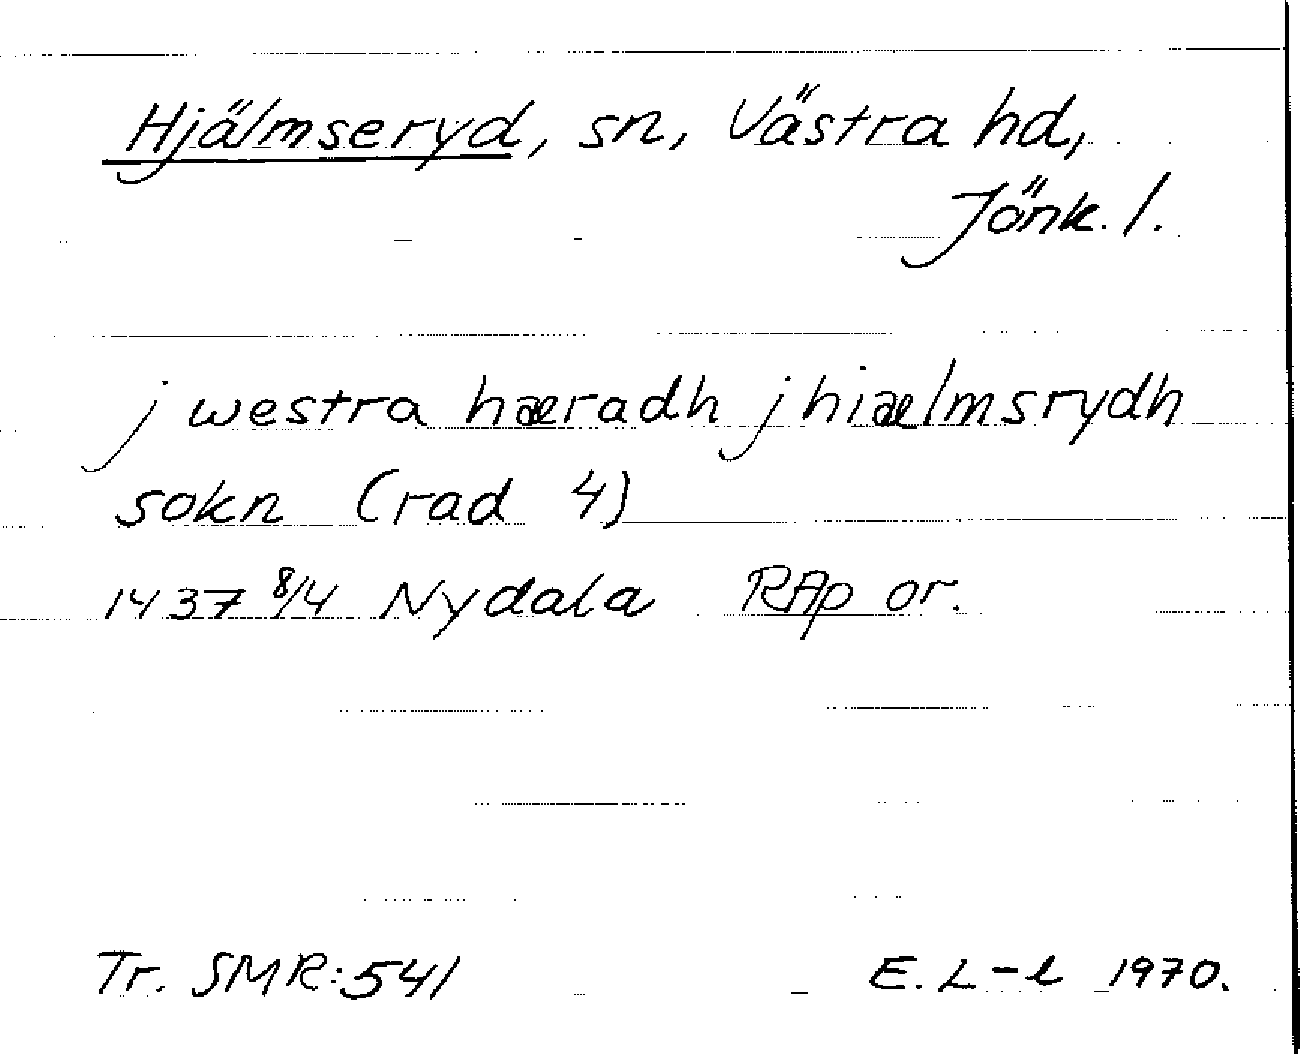 Hjälmseryd, sn, Västra hd,
Jönk. l.
j westra hæradh j hiælmsrydh
sokn (rad 4)
1437 8/4 Nydala RAp or.
Tr. SMR:541 E. L-l 1970.